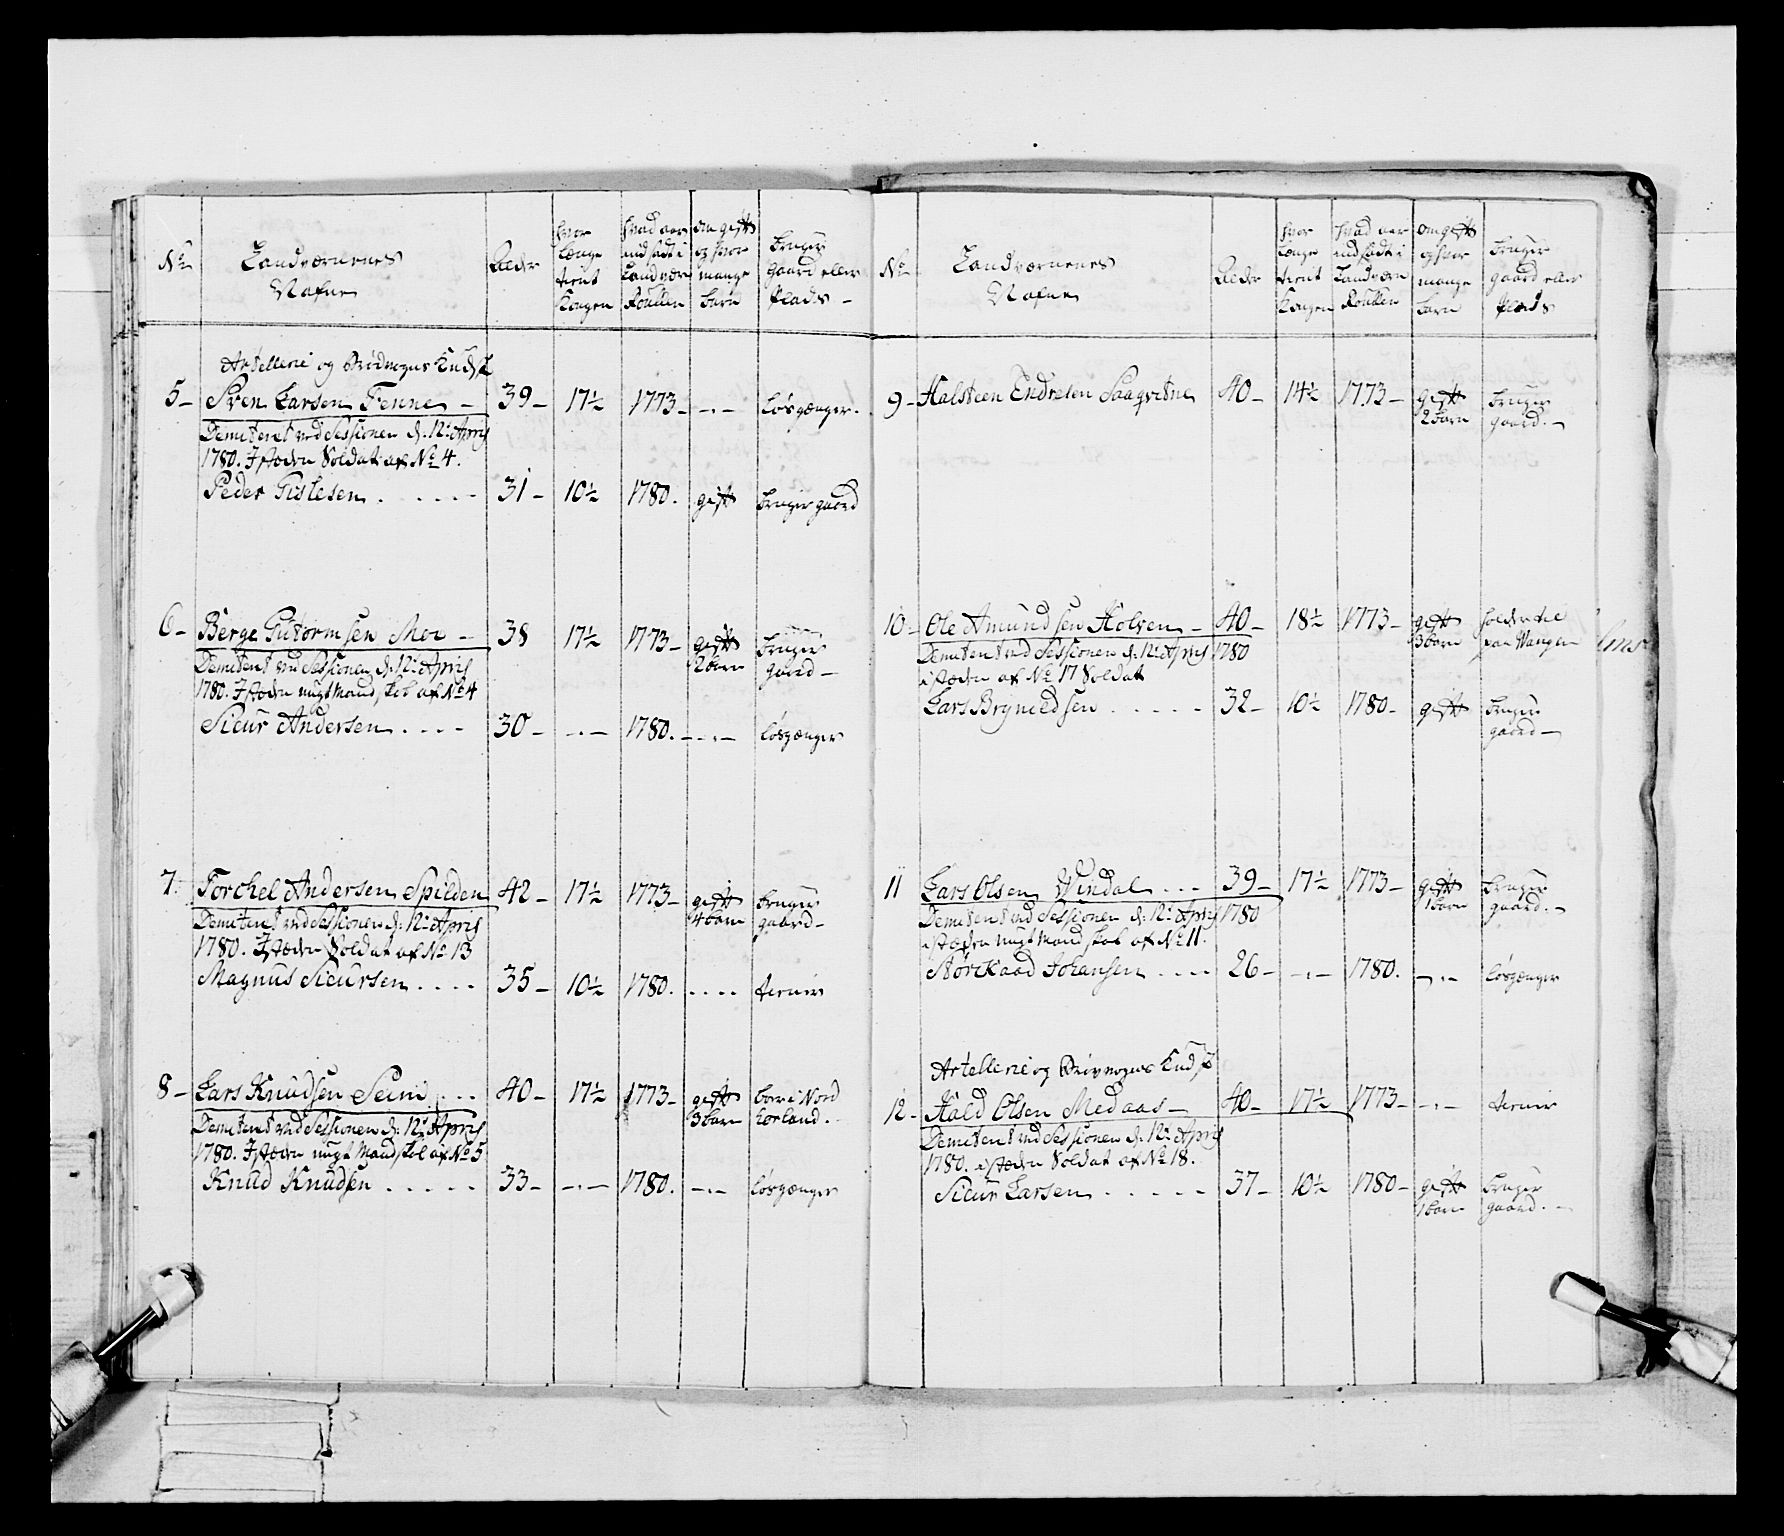 No
Landværnenes
Nafne
Alder
hvor
længe
tient
Kongen
hvad aar
indsadt i
Landværn
Roullen
om gift
og hvor
mange
børn
bruger
gaard eller
Plads -
Artellerie og
5 - Sven Larsen Fenne - 39 - 17½ 1773 - - . - løsgænger.
Demitert ved Sessionen d. 12te April
1780. Istæden Soldat af No 4.
Peder Gislesen . . . . 31 - 10½ 1780. gift bruger gaard
6 - Berge Gutormsen Moe - 38 17½ 1773 - gift bruger
2 børn gaard -
Demitert ved Sessionen d. 12te April
1780. Istæden ungt Mandskab af No 4
Siur Andersen . . . . 30 - - . - 1780. - . - løsgænger
7. Torchel Andersen Spilden 42 - 17½ 1773 - gift bruger
4 børn gaard -
Demitert ved Sessionen d. 12te April
1780. Istæden Soldat af No 13
Magnus Siursen . . . . 35 - 10½ 1780. . . . . tiener
8 - Lars Knudsen Seim . . 40 - 17½ 1773 - gift boer i Nord
3 børn horland.
Demitert ved Sessionen d. 12te April
1780. Istæden ungt Mandskab af No 5
Knud Knudsen . . . . . 33 - - . - 1780. - . - løsgænger
No
Landværnenes
Nafne
Alder
hvor
længe
tient
Kongen
hvad aar
indsadt i
Landværn
Roullen
om gift
og hvor
mange
børn
bruger
gaard eller
Plads
9 - Halsteen Endresen Saaqvitne 40 - 14½ 1773 - gift bruger
2 børn gaard. -
10 - Ole Amundsen Holven - 40 - 18½ 1773 - gift
3 børn paa Wangen
Demitert ved Sessionen d. 12te April 1780
istæden af No 17 Soldat
Lars Brynieldsen . . . . . 32 - 10½ 1780 - gift bruger
gaard -
11 Lars Olsen Windal . . . 39 - 17½ 1773 - gift bruger
1 barn gaard. -
Demitert ved Sessionen d. 12te April 1780
istæden ungt Mandskab af No 11.
Størckaad Johansen . . . . 26 - - . - 1780. - . - løsgænger
Artellerie og
12 - Hald Olsen Medaas - 40 - 17½ 1773 - - . - tiener
Demitert ved Sessionen d. 12te April
1780. istæden Soldat af No 18.
Siur Larsen . . . . . 37 - 10½ 1780 - gift bruger
1 barn gaard. -